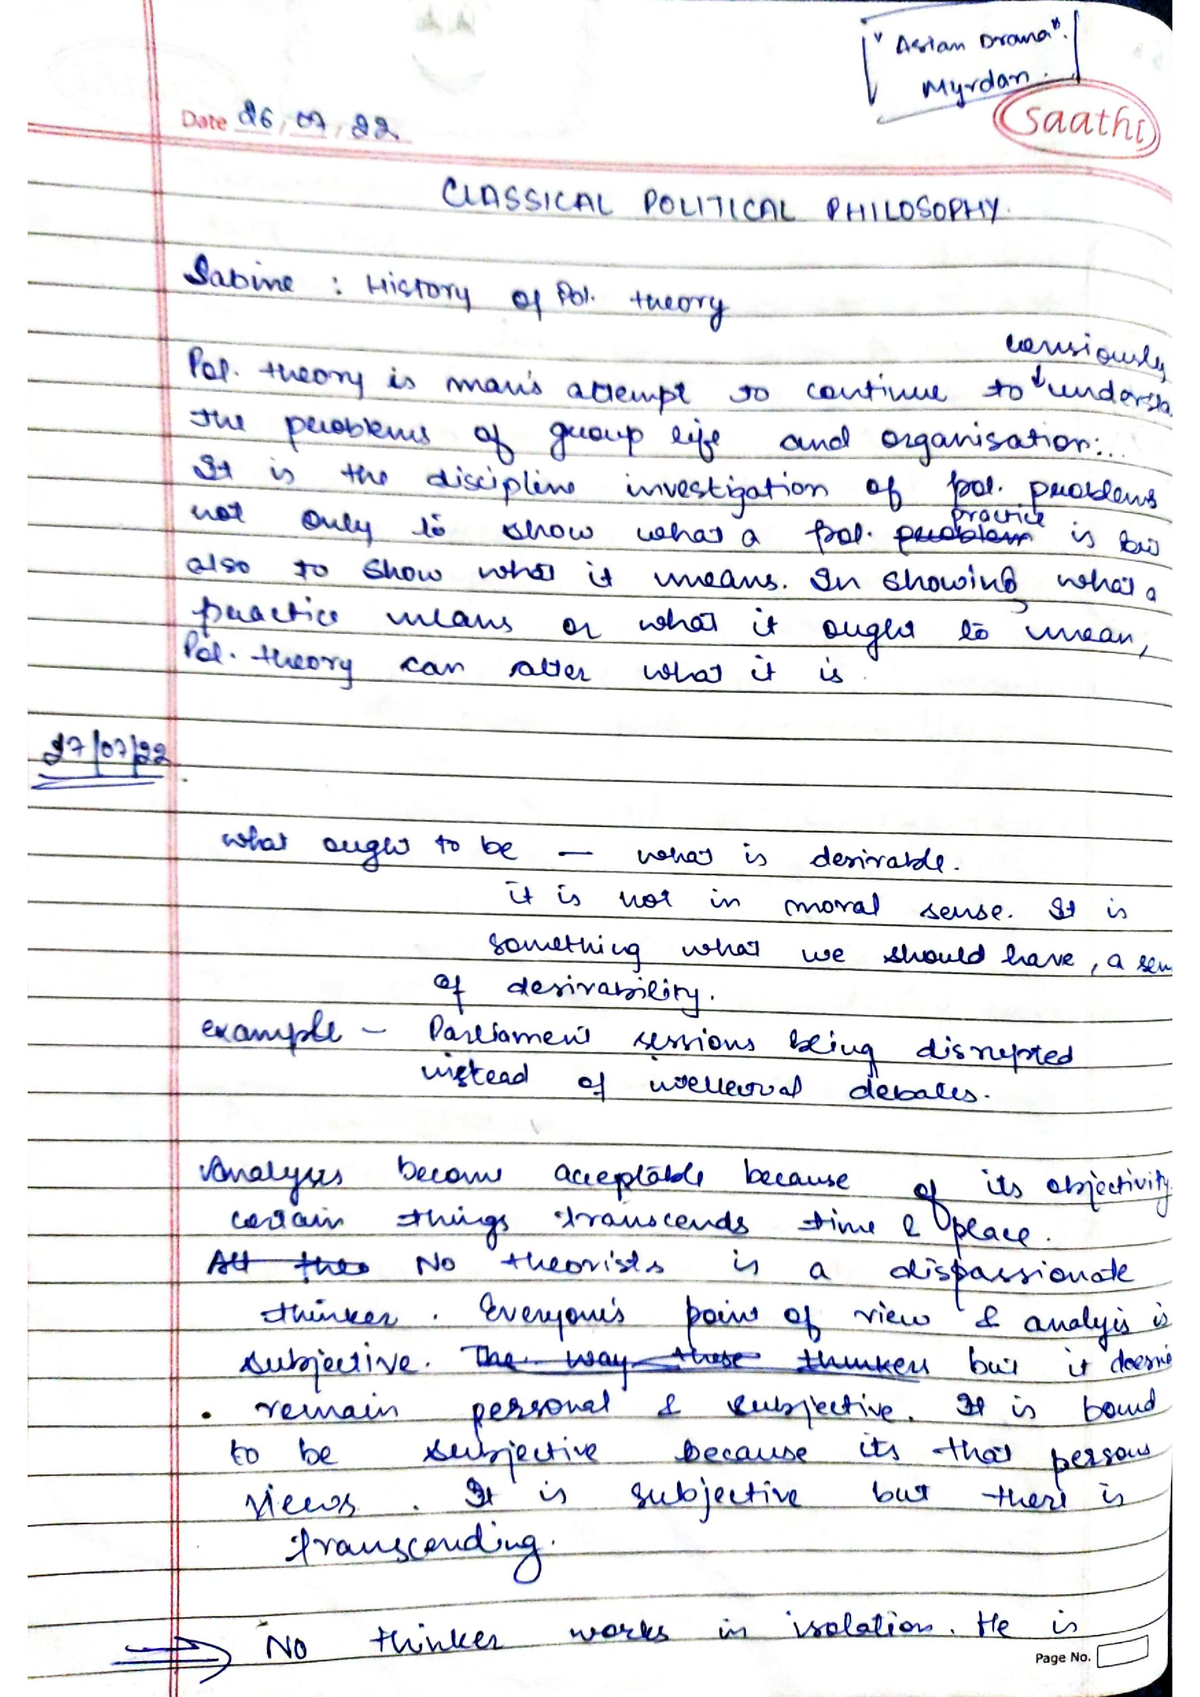 "Asian Drama".
Myrdan.
saathi
Date 26/07/22
CLASSICAL POLITICAL PHILOSOPHY.
Sabine : History of Pol. theory
consiously
Pol. theory is man's attempt to continue to understa
the problems of group life and organisation:..
It is the discipline investigation of pol. problems
practice
not only to show what a pol. problem is but
also to show what it means. In showing what a
practice means or what it ought to mean,
Pol. theory can alter what it is.
27/07/22
what ought to be — what is desirable.
it is not in moral sense. It is
something what we should have, a sen
of desirability.
example – Parliament sessions being disrupted
instead of intellectual debates.
Analyses become acceptable because of its objectivity.
certain things transcends time & place.
All theo No theorists is a dispassionate
thinker. Everyone's point of view & analysis is
subjective. The way these thinkers but it doesn't
remain personal & subjective. It is bound
to be subjective because its that persons
views. It is subjective but there is
transcending.
No thinker works in isolation. He is
Page No.